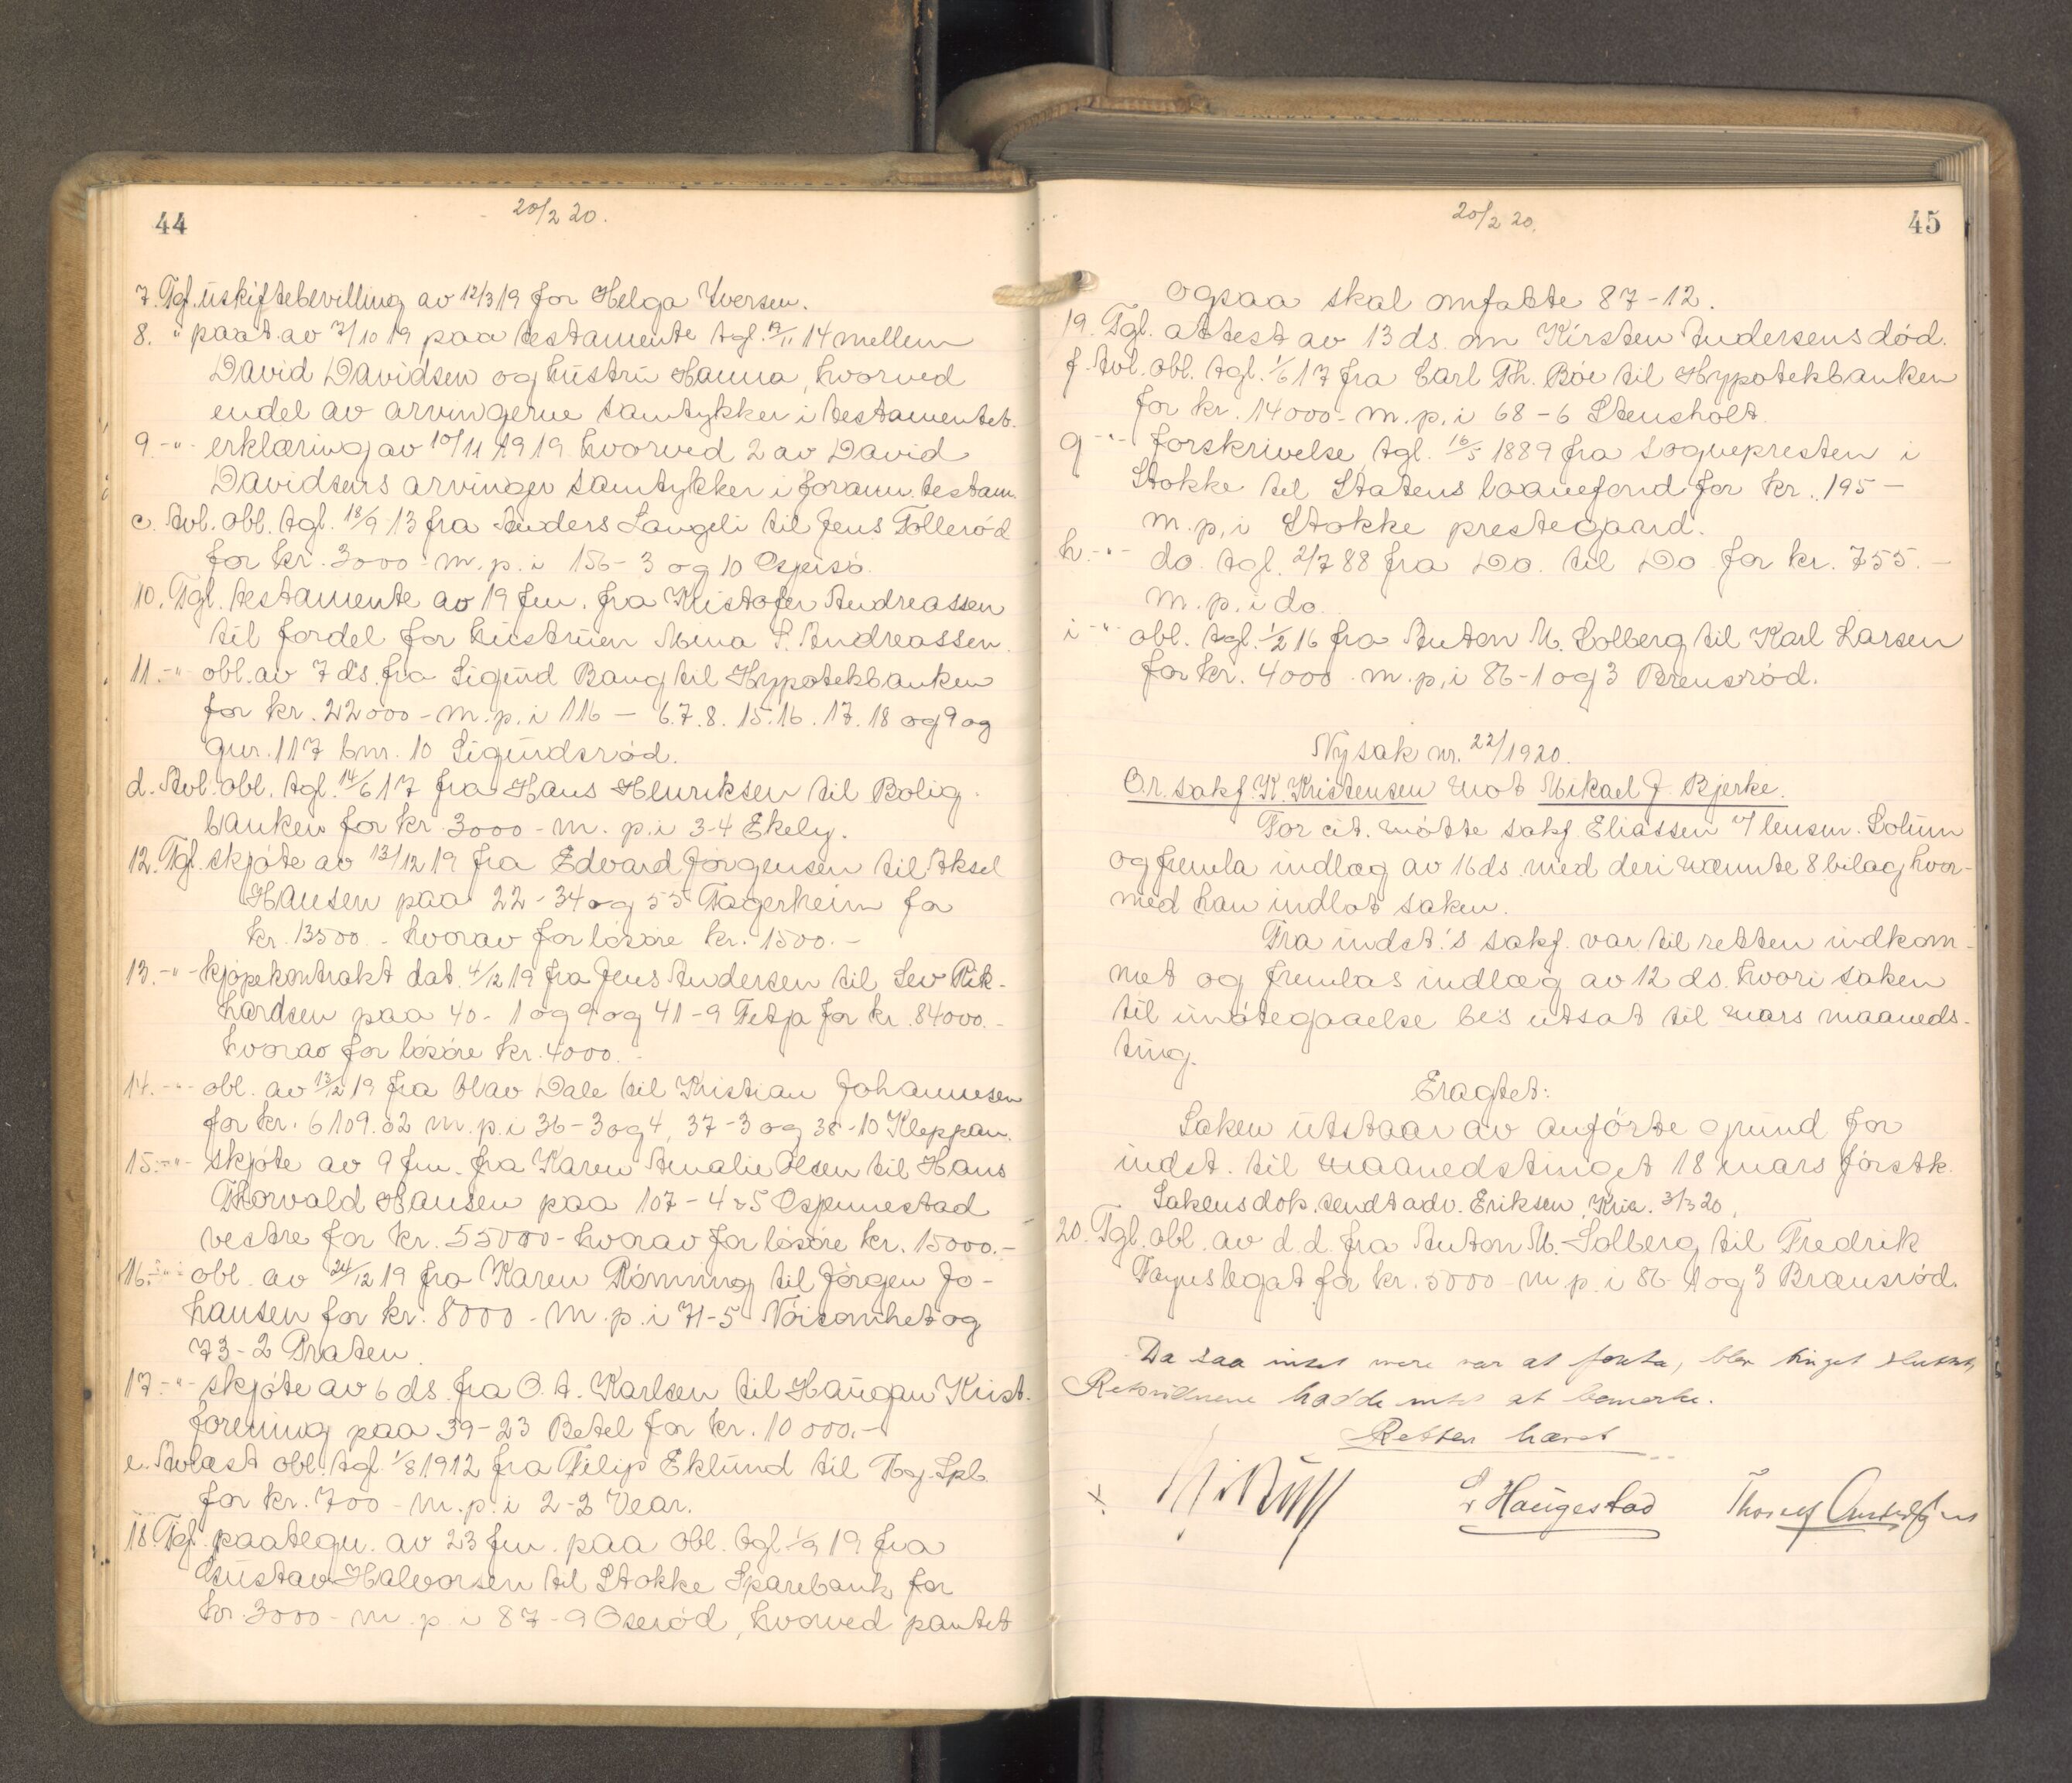 44
20/2 20.
7. Tgl. uskiftebevilling av 12/3 19 for Helga Iversen.
8. " paat. av 7/10 19 paa testamente tgl. 14 mellem
David Davidsen og hustru Hanna, hvorved
endel av arvingerne samtykker i testamentet.
9 -"- erklæring av 10/11 1919 hvorved 2 av David
Davidsens arvinger samtykker i forann. testam.
c. Avl. obl. tgl. 18/9 13 fra Anders Langeli til Jens Tollerød
for kr. 3000 - m. p. i 156 - 3 og 10 Espeisø.
10. Tgl. testamente av 19 f.m. fra Kristofer Andreassen
til fordel for hustruen Mina S. Andreassen.
11. -"- obl. av 7 ds. fra Sigurd Bang til Hypotekbanken
for kr. 22000 - m. p. i 116 - 6. 7. 8. 15. 16. 17. 18 og 9 og
gnr. 117 bnr. 10 Sigurdsrød.
d. Avl. obl. tgl. 14/6 17 fra Hans Henriksen til Bolig-
banken for kr. 3000 - m. p. i 3-4 Ekely.
12. Tgl. skjøte av 13/12 19 fra Edvard Jørgensen til Aksel
Hansen paa 22 - 34 og 55 Fagerheim for
kr. 13500 - hvorav for løsøre kr. 1500. -
13. -"- kjøpekontrakt dat. 4/12 19 fra Jens Andersen til Lev Rik-
hardsen paa 40 - 1 og 9 og 41 - 9 Fetja for kr. 84000. -
hvorav for løsøre kr. 4000. -
14. -"- obl. av 13/12 19 fra Olav Dale til Kristian Johannesen
for kr. 6109.62 m. p. i 36 - 3 og 4, 37 - 3 og 38 - 10 Kleppan.
15. -"- skjøte av 9 f.m. fra Karen Amalie Olsen til Hans
Thorvald Hansen paa 107 - 4 & 5 Espennestad
vestre for kr. 55000 - hvorav for løsøre kr. 15000. -
16. -"- obl. av 24/12 19 fra Karen Rønning til Jørgen Jo-
hansen for kr. 8000 - m. p. i 71-5 Nøisomhet og
73 - 2 Braten.
17. -"- skjøte av 6 ds. fra O. A. Karlsen til Haugan Krist.
forening paa 39 - 23 Betel for kr. 10 000. -
e. Avlæst obl. tgl. 1/8 1912 fra Filip Eklund til Tbg. Spb.
for kr. 700 - m. p. i 2 - 3 Vear.
18. Tgl. paategn. av 23 f.m. paa obl. tgl. 1/9 19 fra
Gustav Halvorsen til Stokke Sparebank for
kr. 3000 - m. p. i 87 - 9 Oserød, hvorved pantet
45
20/2 20.
ogsaa skal omfatte 87 - 12.
19. Tgl. attest av 13 ds. om Kirsten Andersens død.
f. Avl. obl. tgl. 1/6 17 fra Carl Th. Bøe til Hypotekbanken
for kr. 14000 - m. p. i 68 - 6 Stensholt.
g -"- forskrivelse tgl. 16/5 1889 fra sognepresten i
Stokke til Statens laanefond for kr. 195 -
m. p. i Stokke prestegaard.
h. -"- do. tgl. 2/7 88 fra Do. til Do for kr. 755. -
m. p. i do.
i -"- obl. tgl. 1/2 16 fra Anton M. Solberg til Karl Larsen
for kr. 4000 - m. p. i 86 - 1 og 3 Brensrød.
Ny sak nr. 22/1920.
O.r. sakf. K. Kristensen mot Mikael J. Bjerke.
For cit. møtte sakf. Eliassen v/ lensm. Solum
og fremla indlæg av 16 ds. med deri nævnte 8 bilag hvor-
med han indlot saken.
Fra indst.'s sakf. var til retten indkom-
met og fremlas indlæg av 12 ds. hvori saken
til imøtegaaelse bes utsat til mars maaneds-
ting.
Eragtet:
Saken utstaar av anførte grund for
indst. til maanedstinget 18 mars førstk.
Sakens dok. sendt adv. Eriksen, Kria. 3/3 20.
20. Tgl. obl. av d. d. fra Anton M. Solberg til Fredrik
Fayes legat for kr. 5000 - m. p. i 86 - 1 og 3 Brænsrød.
Da saa intet mere var at foreta, blev tinget sluttet,
Retsvidnene hadde intet at bemerke.
Retten hævet
L. Haugestad